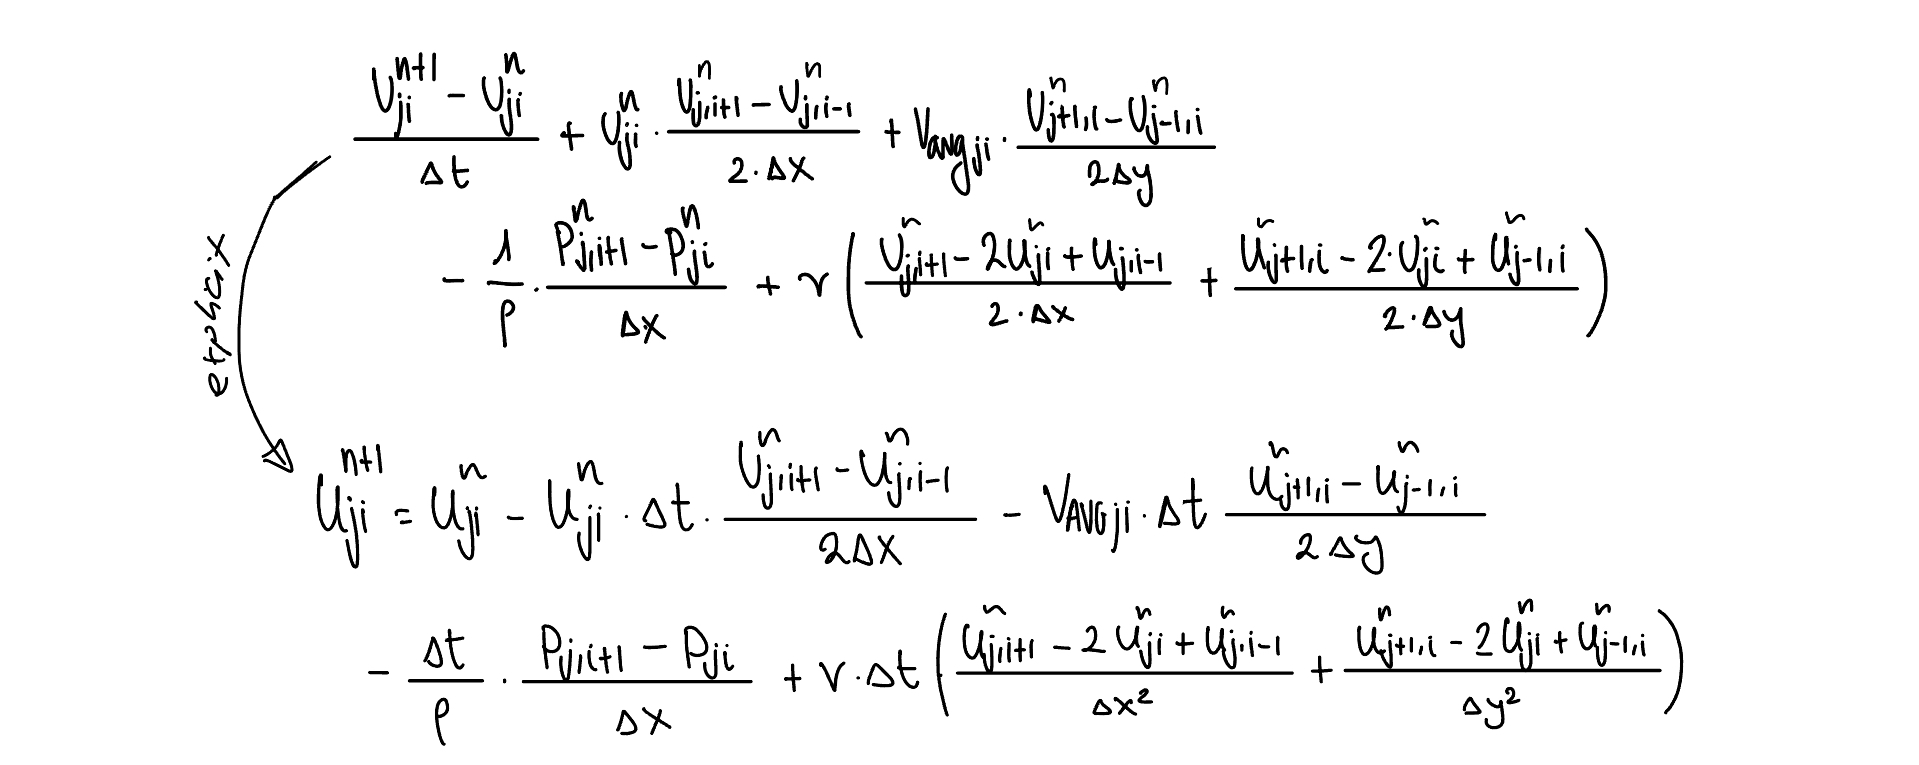 \frac{U_{ji}^{n+1} - U_{ji}^{n}}{\Delta t} + U_{ji}^{n} \cdot \frac{U_{j,i+1}^{n} - U_{j,i-1}^{n}}{2 \cdot \Delta x} + V_{avg ji} \cdot \frac{U_{j+1,i}^{n} - U_{j-1,i}^{n}}{2 \Delta y}
- \frac{1}{\rho} \cdot \frac{P_{j,i+1}^{n} - P_{ji}^{n}}{\Delta x} + \nu \left( \frac{U_{j,i+1}^{n} - 2U_{ji}^{n} + U_{j,i-1}}{2 \cdot \Delta x} + \frac{U_{j+1,i}^{n} - 2 \cdot U_{ji}^{n} + U_{j-1,i}^{n}}{2 \cdot \Delta y} \right)
U_{ji}^{n+1} = U_{ji}^{n} - U_{ji}^{n} \cdot \Delta t \cdot \frac{U_{j,i+1}^{n} - U_{j,i-1}^{n}}{2 \Delta x} - V_{AVG ji} \cdot \Delta t \frac{U_{j+1,i}^{n} - U_{j-1,i}^{n}}{2 \Delta y}
- \frac{\Delta t}{\rho} \cdot \frac{P_{j,i+1} - P_{ji}}{\Delta x} + \nu \cdot \Delta t \left( \frac{U_{j,i+1}^{n} - 2 U_{ji}^{n} + U_{j,i-1}^{n}}{\Delta x^2} + \frac{U_{j+1,i}^{n} - 2 U_{ji}^{n} + U_{j-1,i}^{n}}{\Delta y^2} \right)